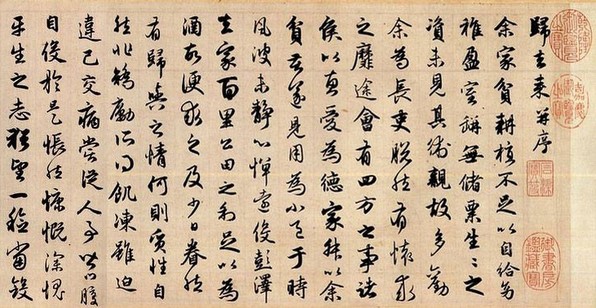 歸去來并序
余家貧耕植不足以自給幼
稚盈室缾無儲粟生生之
資未見其術親故多勸
余為長吏脫然有懷求
之靡途會有四方之事諸
侯以惠愛為德家叔以余
貧苦遂見用為小邑于時
風波未靜心憚遠役彭澤
去家百里公田之利足以為
酒故便求之及少日眷然
有歸與之情何則質性自
然非矯勵所得飢凍雖迫
違己交病嘗從人事皆口腹
自役於是悵然慷慨深愧
平生之志猶望一稔當斂
御書房鑑藏寶